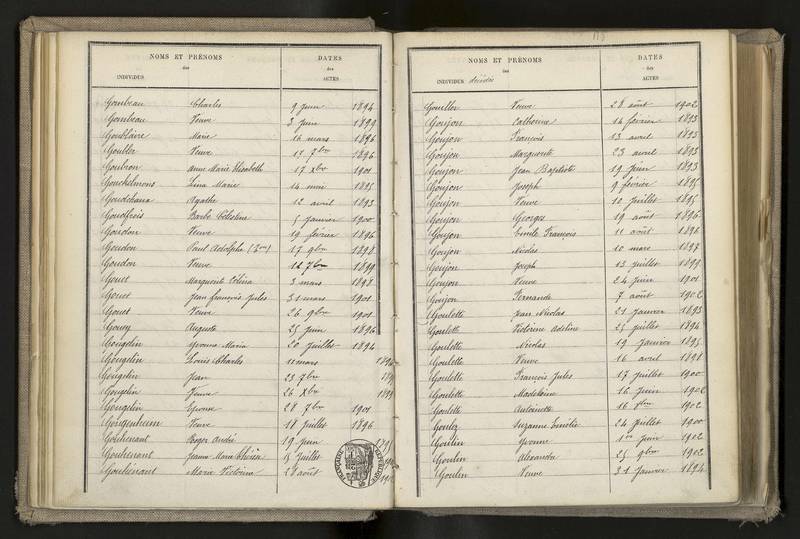 NOMS ET PRÉNOMS DATES
des des
INDIVIDUS ACTES
Goubeau Charles 9 juin 1894
Goubeau Veuve 3 juin 1899
Goublaire Marie 16 mars 1896
Goubler Veuve 17 7bre 1896
Goubron Anne Marie Elisabeth 17 Xbre 1901
Lina Marie 14 mai 1895
Goudchaux Agathe 12 avril 1893
Barbe Célestine 5 janvier 1900
Goudon Veuve 19 février 1896
Goudon Paul Adolphe 17 9bre 1898
Goudon Veuve 12 7bre 1899
Gouet Marguerite 3 mars 1898
Gouet Jean François Jules 31 mars 1901
Gouet Veuve 26 9bre 1901
Gouey Auguste 25 juin 1896
Gougelin Yvonne Maria 20 juillet 1894
Gougelin Louis Charles 11 mars
Gougelin Jean 23 7bre
Gougelin Veuve 26 Xbre
Gougelin 28 7bre 1901
Gougenheim Veuve 18 juillet 1896
Gouhenant Roger André 19 juin
Gouhenant Jeanne Marie Thérèse juillet
Gouhenant Marie Victorine 28 août
NOMS ET PRÉNOMS DATES
des des
INDIVIDUS décédés ACTES
Gouiller Veuve 28 août 1902
Goujon Catherine 14 février 1893
Goujon François 13 avril 1893
Goujon Marguerite 23 avril 1893
Goujon Jean Baptiste 19 juin 1893
Goujon Joseph 9 février 1895
Goujon Veuve 10 juillet 1895
Goujon Georges 19 août 1896
Goujon Emile François 11 août 1896
Goujon Nicolas 10 mars 1897
Goujon Joseph 13 juillet 1899
Goujon Veuve 24 juin 1901
Goujon Fernande 7 août 1902
Goulette Jean Nicolas 21 janvier 1893
Goulette Victorine Adeline 25 juillet 1894
Goulette Nicolas 19 janvier 1895
Goulette Veuve 16 avril 1898
Goulette François Jules 17 juillet 1900
Goulette Madeleine 16 juin 1902
Goulette Antoinette 16 1902
Suzanne Emélie 24 juillet 1900
Goulin Yvonne 1er juin 1902
Goulin Alexandre 25 9bre 1902
Goulin Veuve 31 janvier 1894